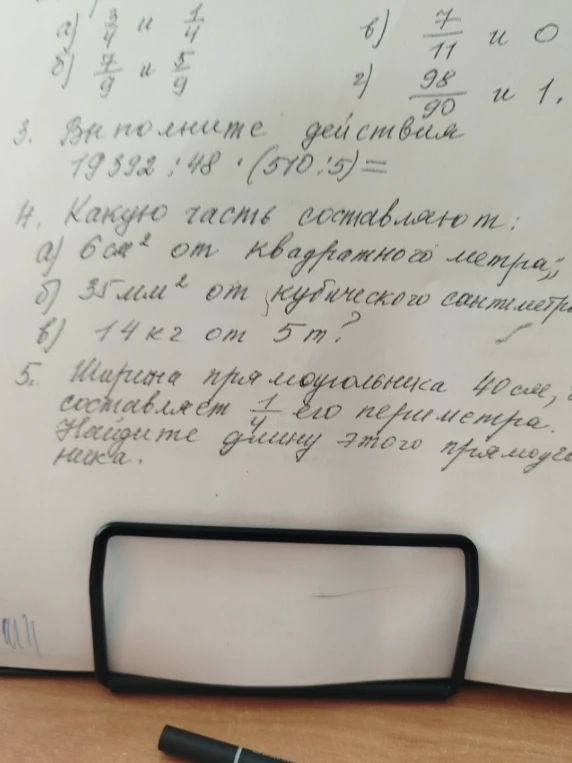 а) 3/4 и 1/4
б) 7/9 и 5/9
в) 7/11 и 0
г) 98/90 и 1.
3. Выполните действия
19392 : 48 · (510 : 5) =
4. Какую часть составляют:
а) 6 см² от квадратного метра;
б) 35 мм² от кубического сантиметра
в) 14 кг от 5 т?
5. Ширина прямоугольника 40 см,
составляет 1/4 его периметра.
Найдите длину этого прямоуго
ника.